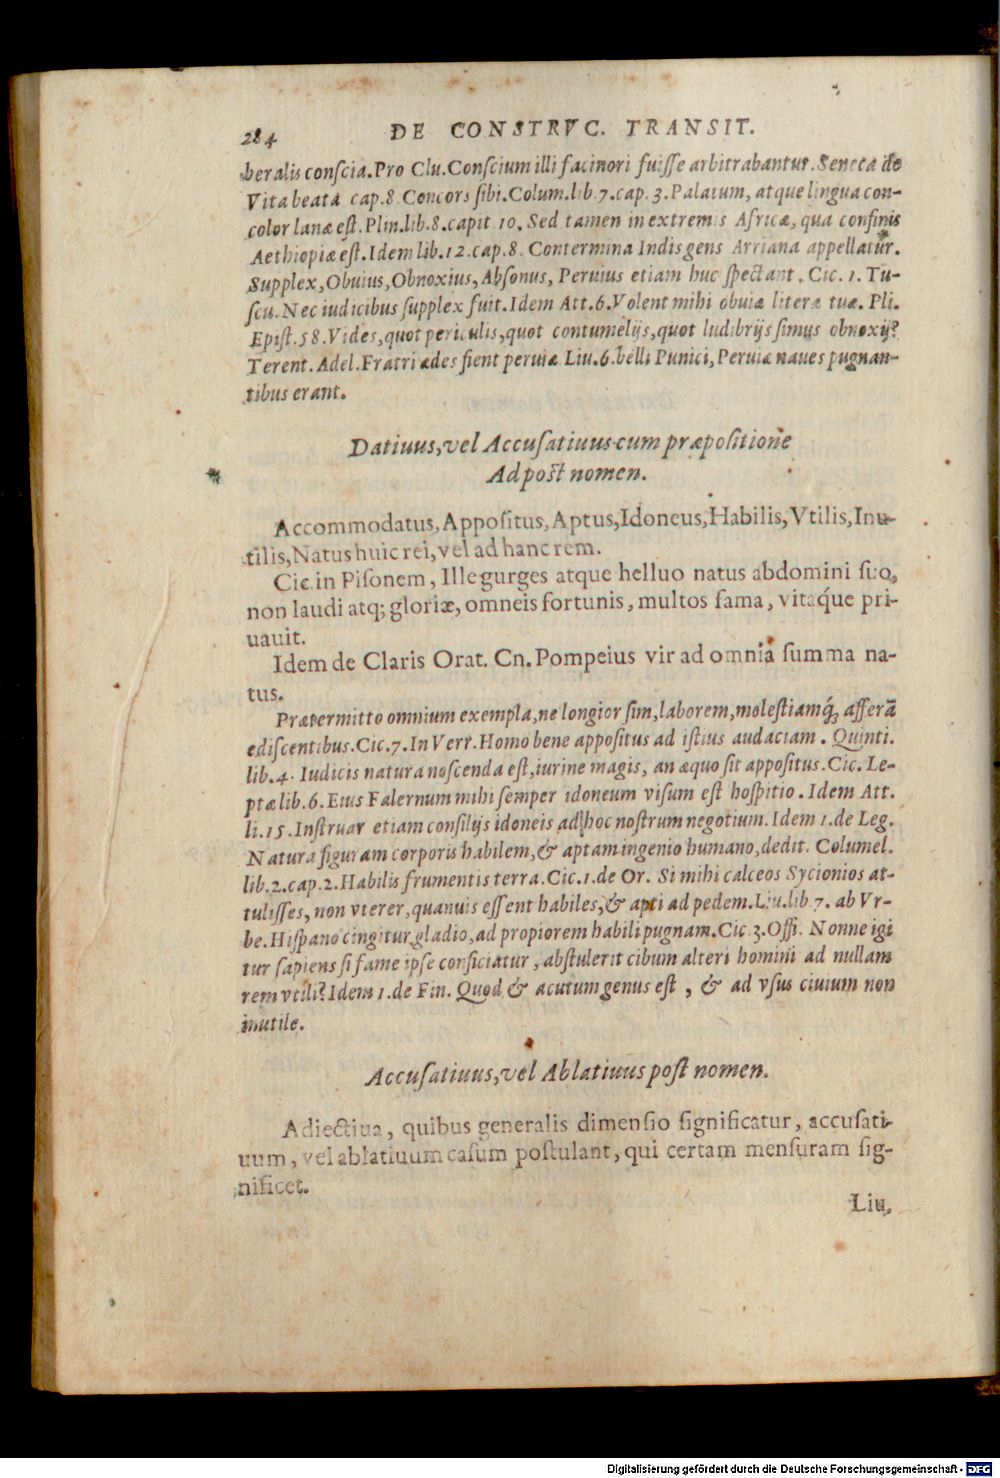 284 DE CONSTRVC. TRANSIT.
beralis conscia. Pro Clu. Conscium illi facinori fuisse arbitrabantur. Seneca de
Vita beata cap. 8. Concors sibi. Colum. lib. 7. cap. 3. Palatum, atque lingua con-
color lanæ est. Plin. lib. 8. capit 10. Sed tamen in extremis Africæ, qua confinis
Aethiopiæ est. Idem lib. 12. cap. 8. Contermina Indis gens Arriana appellatur.
Supplex, Obuius, Obnoxius, Absonus, Peruius etiam huc spectant. Cic. 1. Tu-
scu. Nec iudicibus supplex fuit. Idem Att. 6. Volent mihi obuiæ literæ tuæ. Pli.
Epist. 58. Vides, quot periculis, quot contumelijs, quot ludibrijs simus obnoxij?
Terent. Adel. Fratri ædes fient peruiæ Liu. 6. belli Punici, Peruiæ naues pugnan-
tibus erant.
Datiuus, vel Accusatiuus cum præpositione
Ad post nomen.
Accommodatus, Appositus, Aptus, Idoneus, Habilis, Vtilis, Inu-
tilis, Natus huic rei, vel ad hanc rem.
Cic. in Pisonem, Ille gurges atque helluo natus abdomini suo,
non laudi atq; gloriæ, omneis fortunis, multos fama, vitaq́ue pri-
uauit.
Idem de Claris Orat. Cn. Pompeius vir ad omnia summa na-
tus.
Prætermitto omnium exempla, ne longior sim, laborem, molestiamq́; afferā
ediscentibus. Cic. 7. In Verr. Homo bene appositus ad istius audaciam. Quinti.
lib. 4. Iudicis natura noscenda est, iurine magis, an æquo sit appositus. Cic. Le-
ptæ lib. 6. Eius Falernum mihi semper idoneum visum est hospitio. Idem Att.
li. 15. Instruar etiam consilijs idoneis ad hoc nostrum negotium. Idem 1. de Leg.
Natura figuram corporis habilem, & aptam ingenio humano, dedit. Columel.
lib. 2. cap. 2. Habilis frumentis terra. Cic. 1. de Or. Si mihi calceos Sycionios at-
tulisses, non vterer, quanuis essent habiles, & apti ad pedem. Liu. lib 7. ab Vr-
be. Hispano cingitur gladio, ad propiorem habili pugnam. Cic 3. Offi. Nonne igi
tur sapiens si fame ipse conficiatur, abstulerit cibum alteri homini ad nullam
rem vtili? Idem 1. de Fin. Quod & acutum genus est, & ad vsus ciuium non
inutile.
Accusatiuus, vel Ablatiuus post nomen.
Adiectiua, quibus generalis dimensio significatur, accusati-
uum, vel ablatiuum casum postulant, qui certam mensuram sig-
nificet.
Liu.
Digitalisierung gefördert durch die Deutsche Forschungsgemeinschaft - DFG